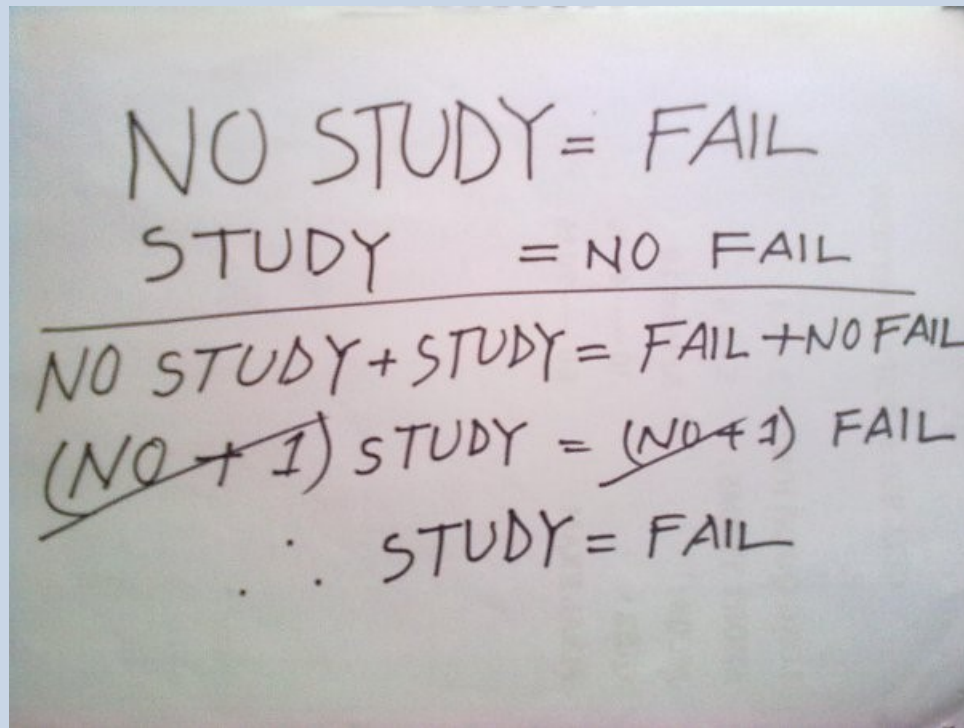 NO STUDY = FAIL
STUDY = NO FAIL
NO STUDY + STUDY = FAIL + NO FAIL
(NO + 1) STUDY = (NO + 1) FAIL
∴ STUDY = FAIL